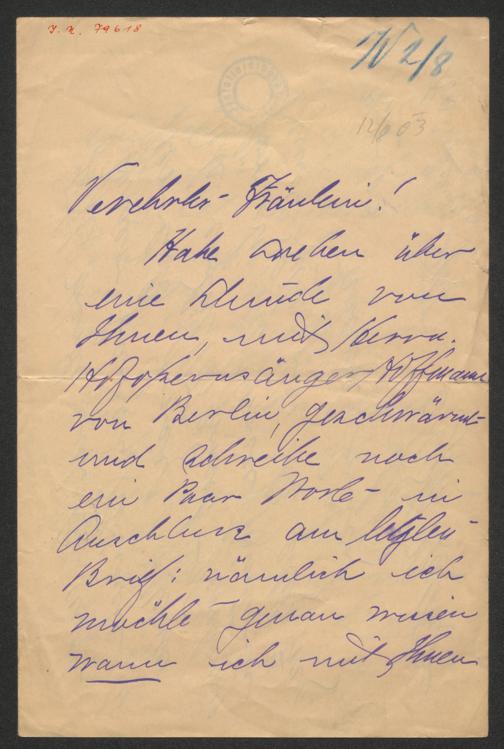 J. N. 79618
W 2/8
12/8 03
Verehrtes Fräulein!
Habe soeben über
eine Stunde von
Ihnen, mit Herrn
Hofopernsänger Hoffmann
von Berlin, geschwärmt
und schreibe noch
ein Paar Worte in
Anschluss am letzten
Brief: nämlich ich
möchte genau wissen
wann ich mit Ihnen